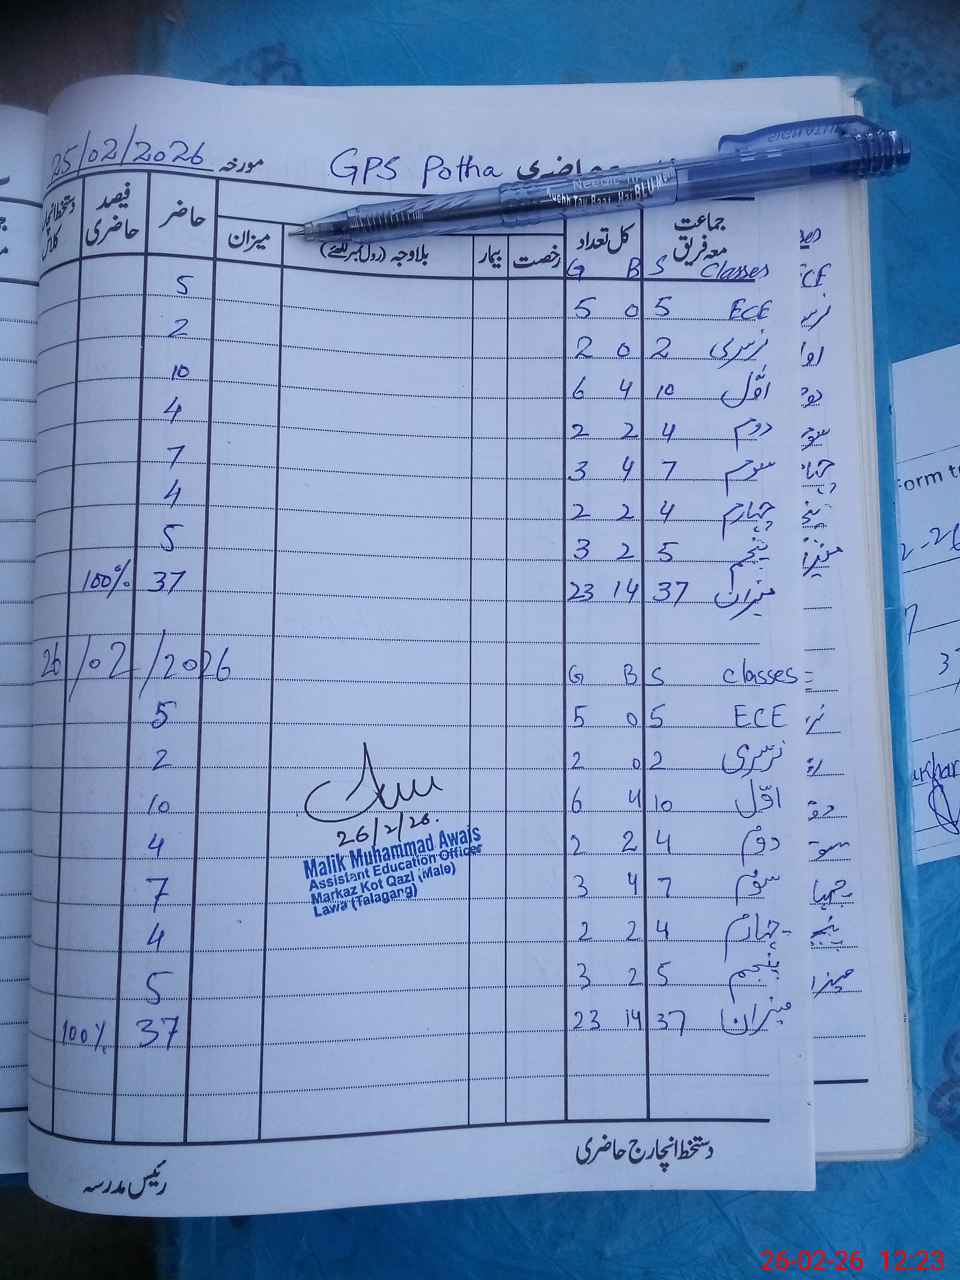 GPS Potha حاضری مورخہ 25/02/2026
جماعت معہ فریق کل تعداد رخصت بیمار بلاوجہ (رول نمبر لکھئے) میزان حاضر فیصد حاضری
Classes S B G
ECE 5 0 5 5
نرسری 2 0 2 2
اوّل 10 4 6 10
دوم 4 2 2 4
سوم 7 4 3 7
چہارم 4 2 2 4
پنجم 5 2 3 5
میزان 37 14 23 37 100%
26/02/2026
classes S B G
ECE 5 0 5 5
نرسری 2 0 2 2
اوّل 10 4 6 10
دوم 4 2 2 4
سوم 7 4 3 7
چہارم 4 2 2 4
پنجم 5 2 3 5
میزان 37 14 23 37 100%
26/2/26.
Malik Muhammad Awais
Assistant Education Officer
Markaz Kot Qazi (Male)
Lawa (Talagang)
دستخط انچارج حاضری
رئیس مدرسہ
26-02-26 12:23